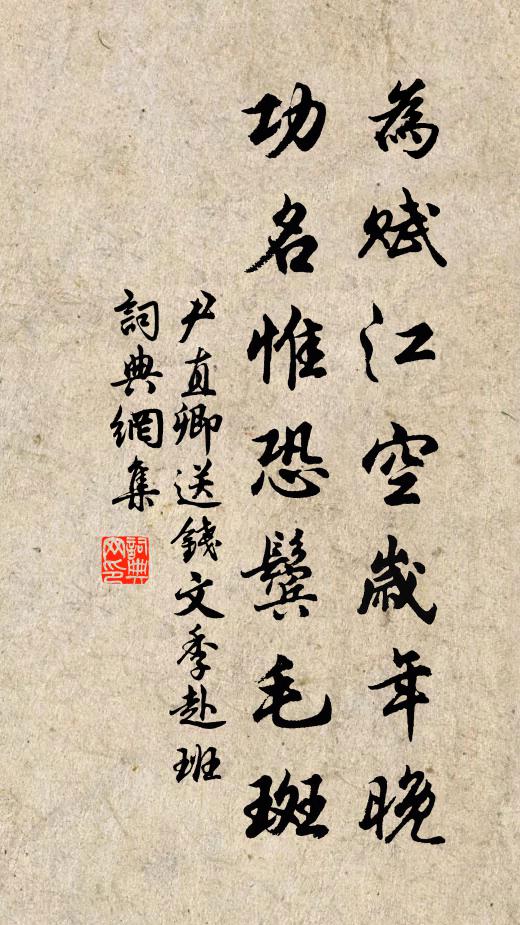 為賦江空歲年晚
功名惟恐鬢毛斑
尹直卿送錢文季赴班
詞典網集
詞典網印